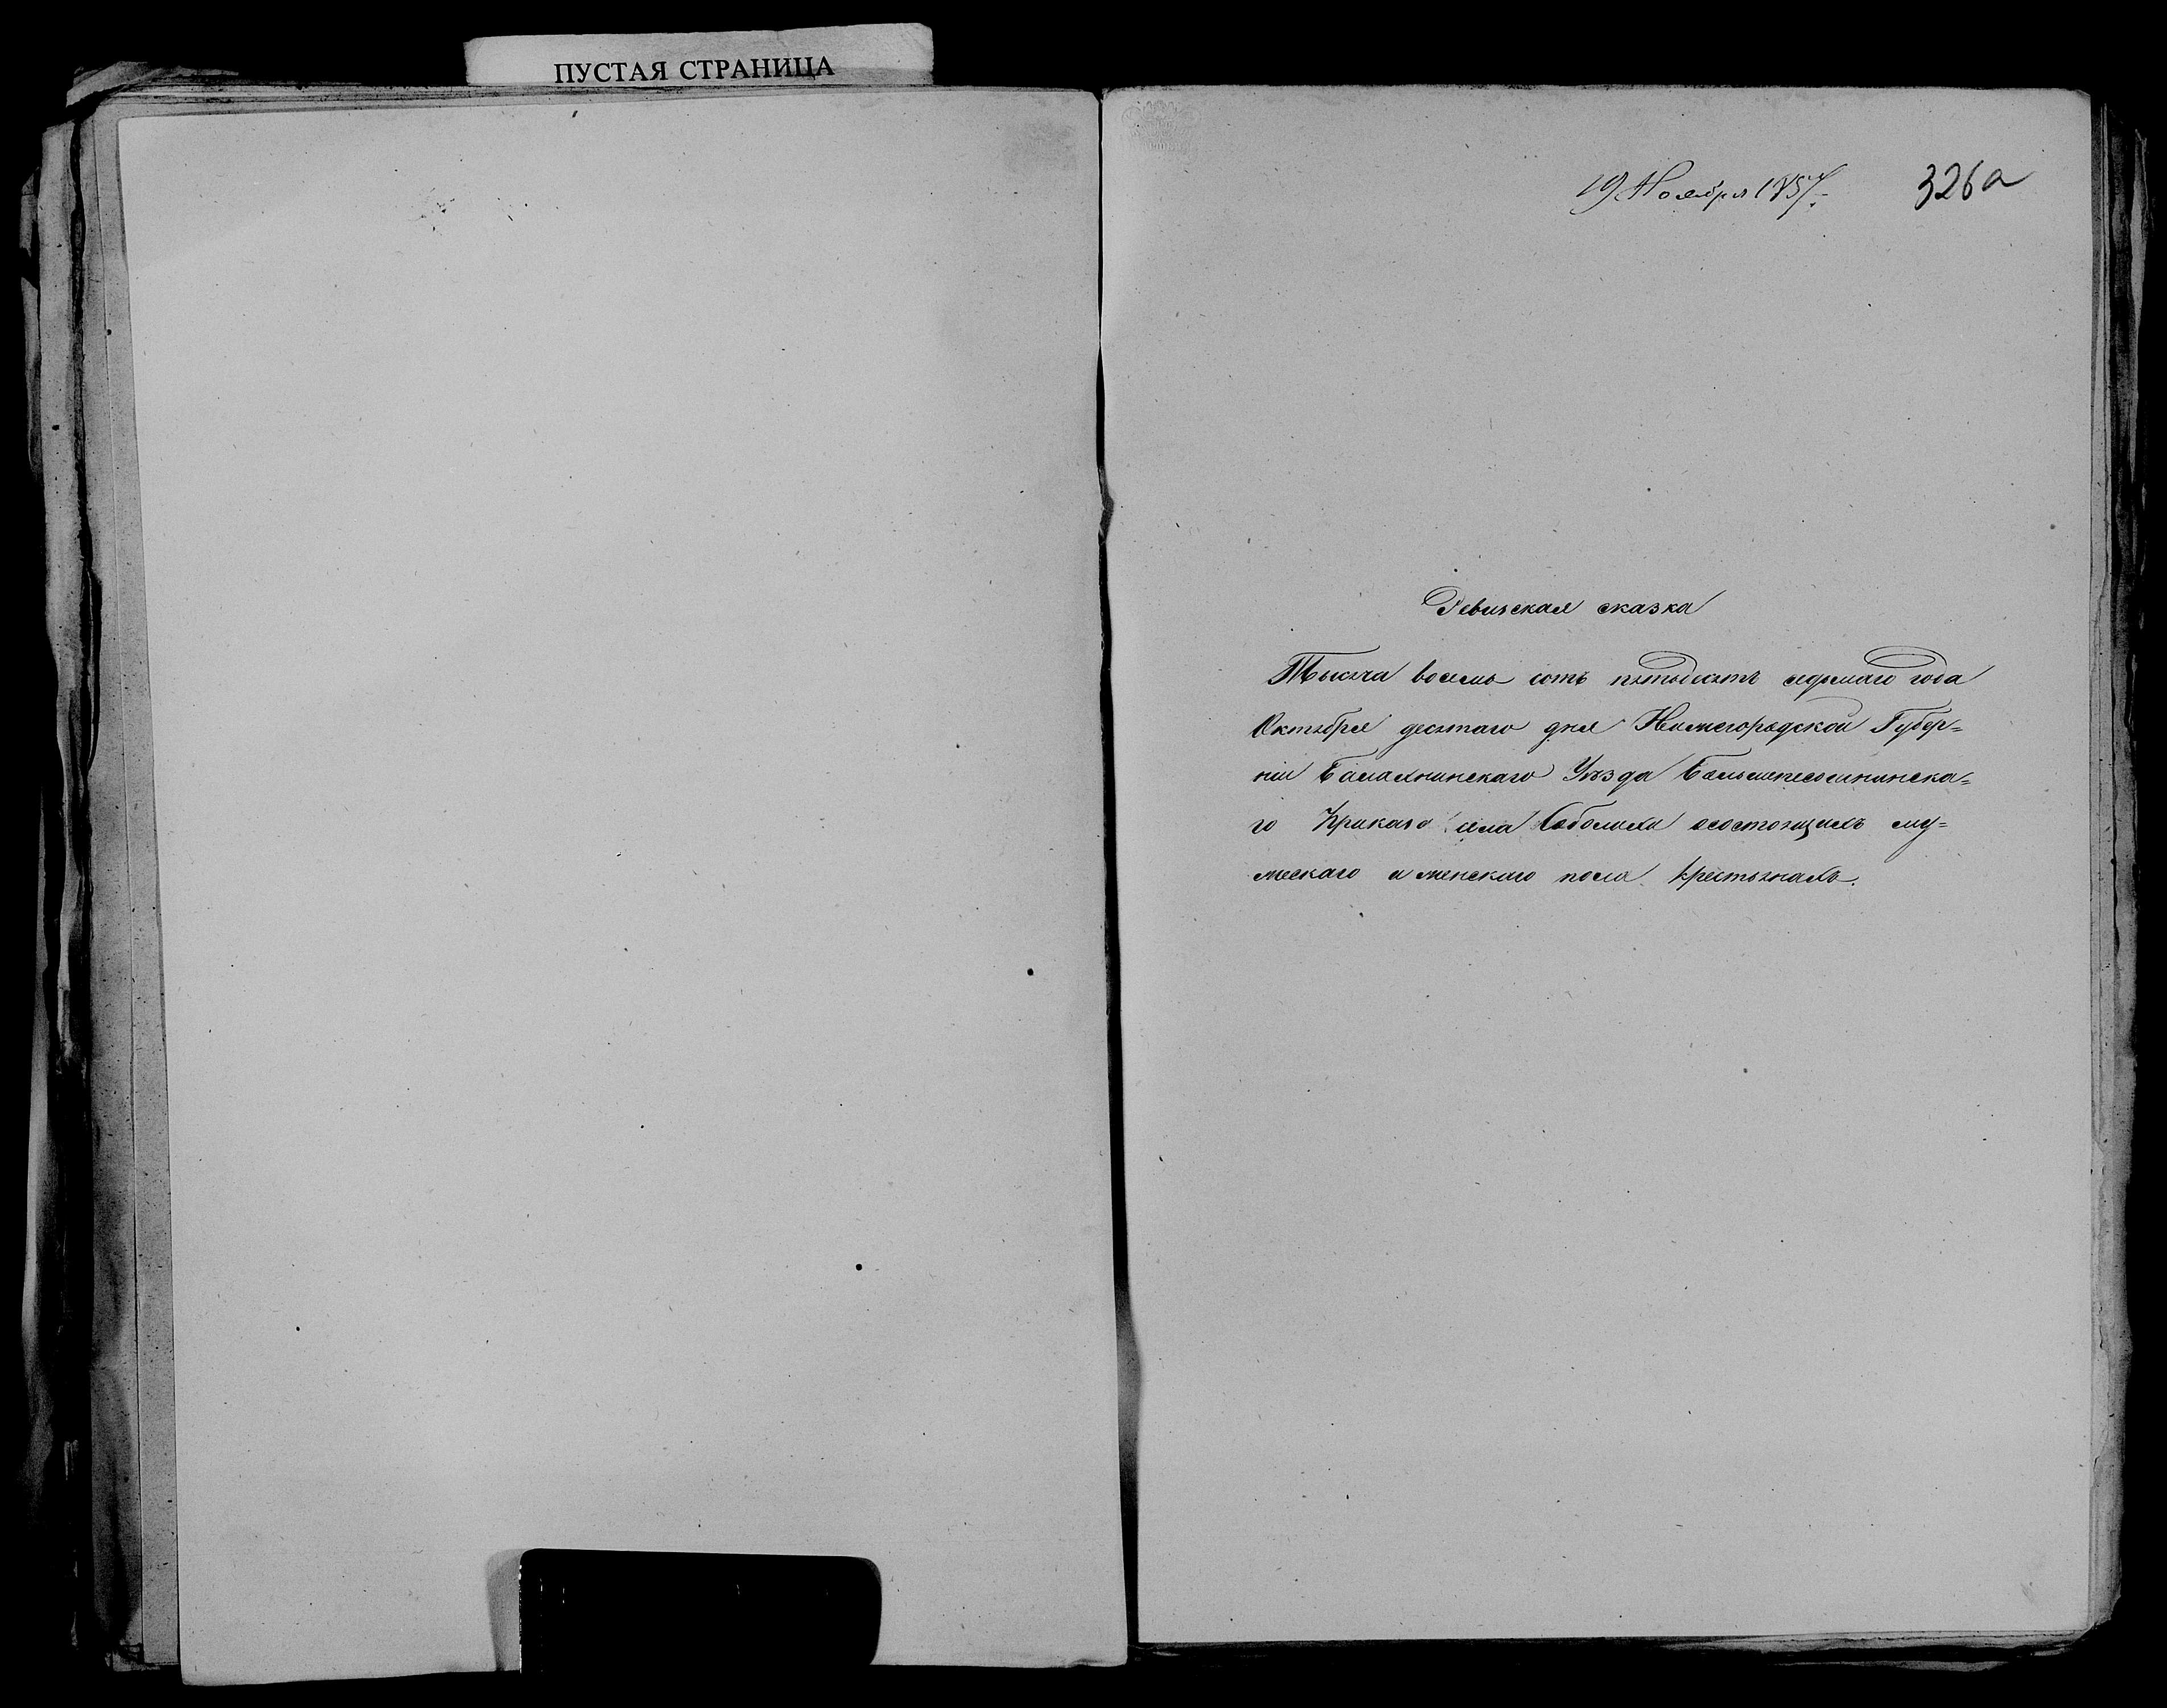 ПУСТАЯ СТРАНИЦА
19 Ноября 1857.
326а
Ревизская сказка
Тысяча восемь сотъ пятьдесятъ седьмаго года
Октября десятаго дня Нижегородской Губер=
ніи Балахнинскаго Уѣзда Большепесошнинска=
го Приказа села о состоящихъ му=
жескаго и женскаго пола крестьянахъ.